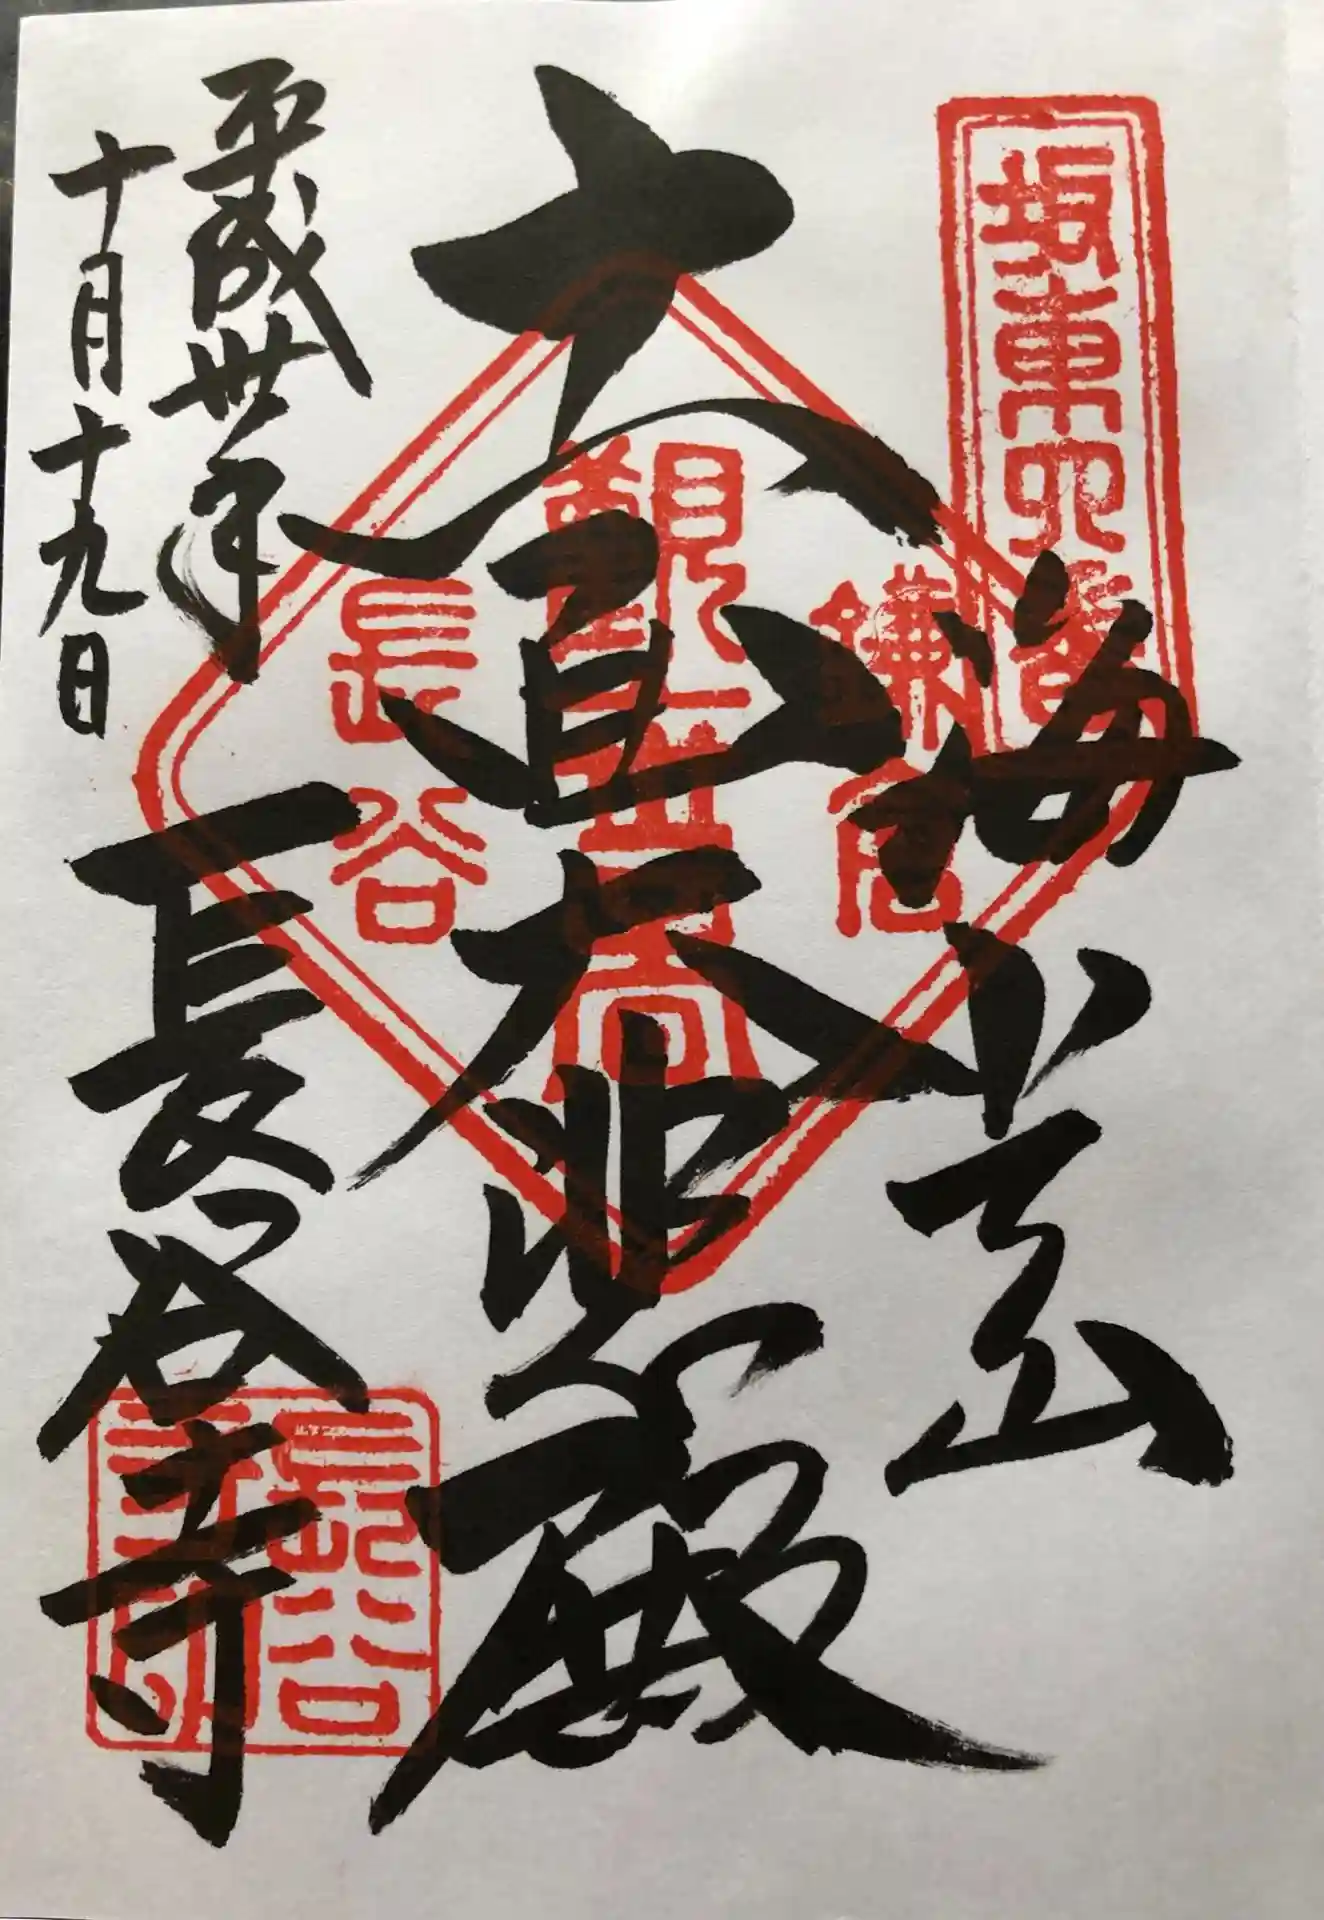 坂東四番
海光山
鎌倉
觀世音
長谷
十一面大悲殿
平成卅年
十月十九日
長谷寺
長谷
寺印